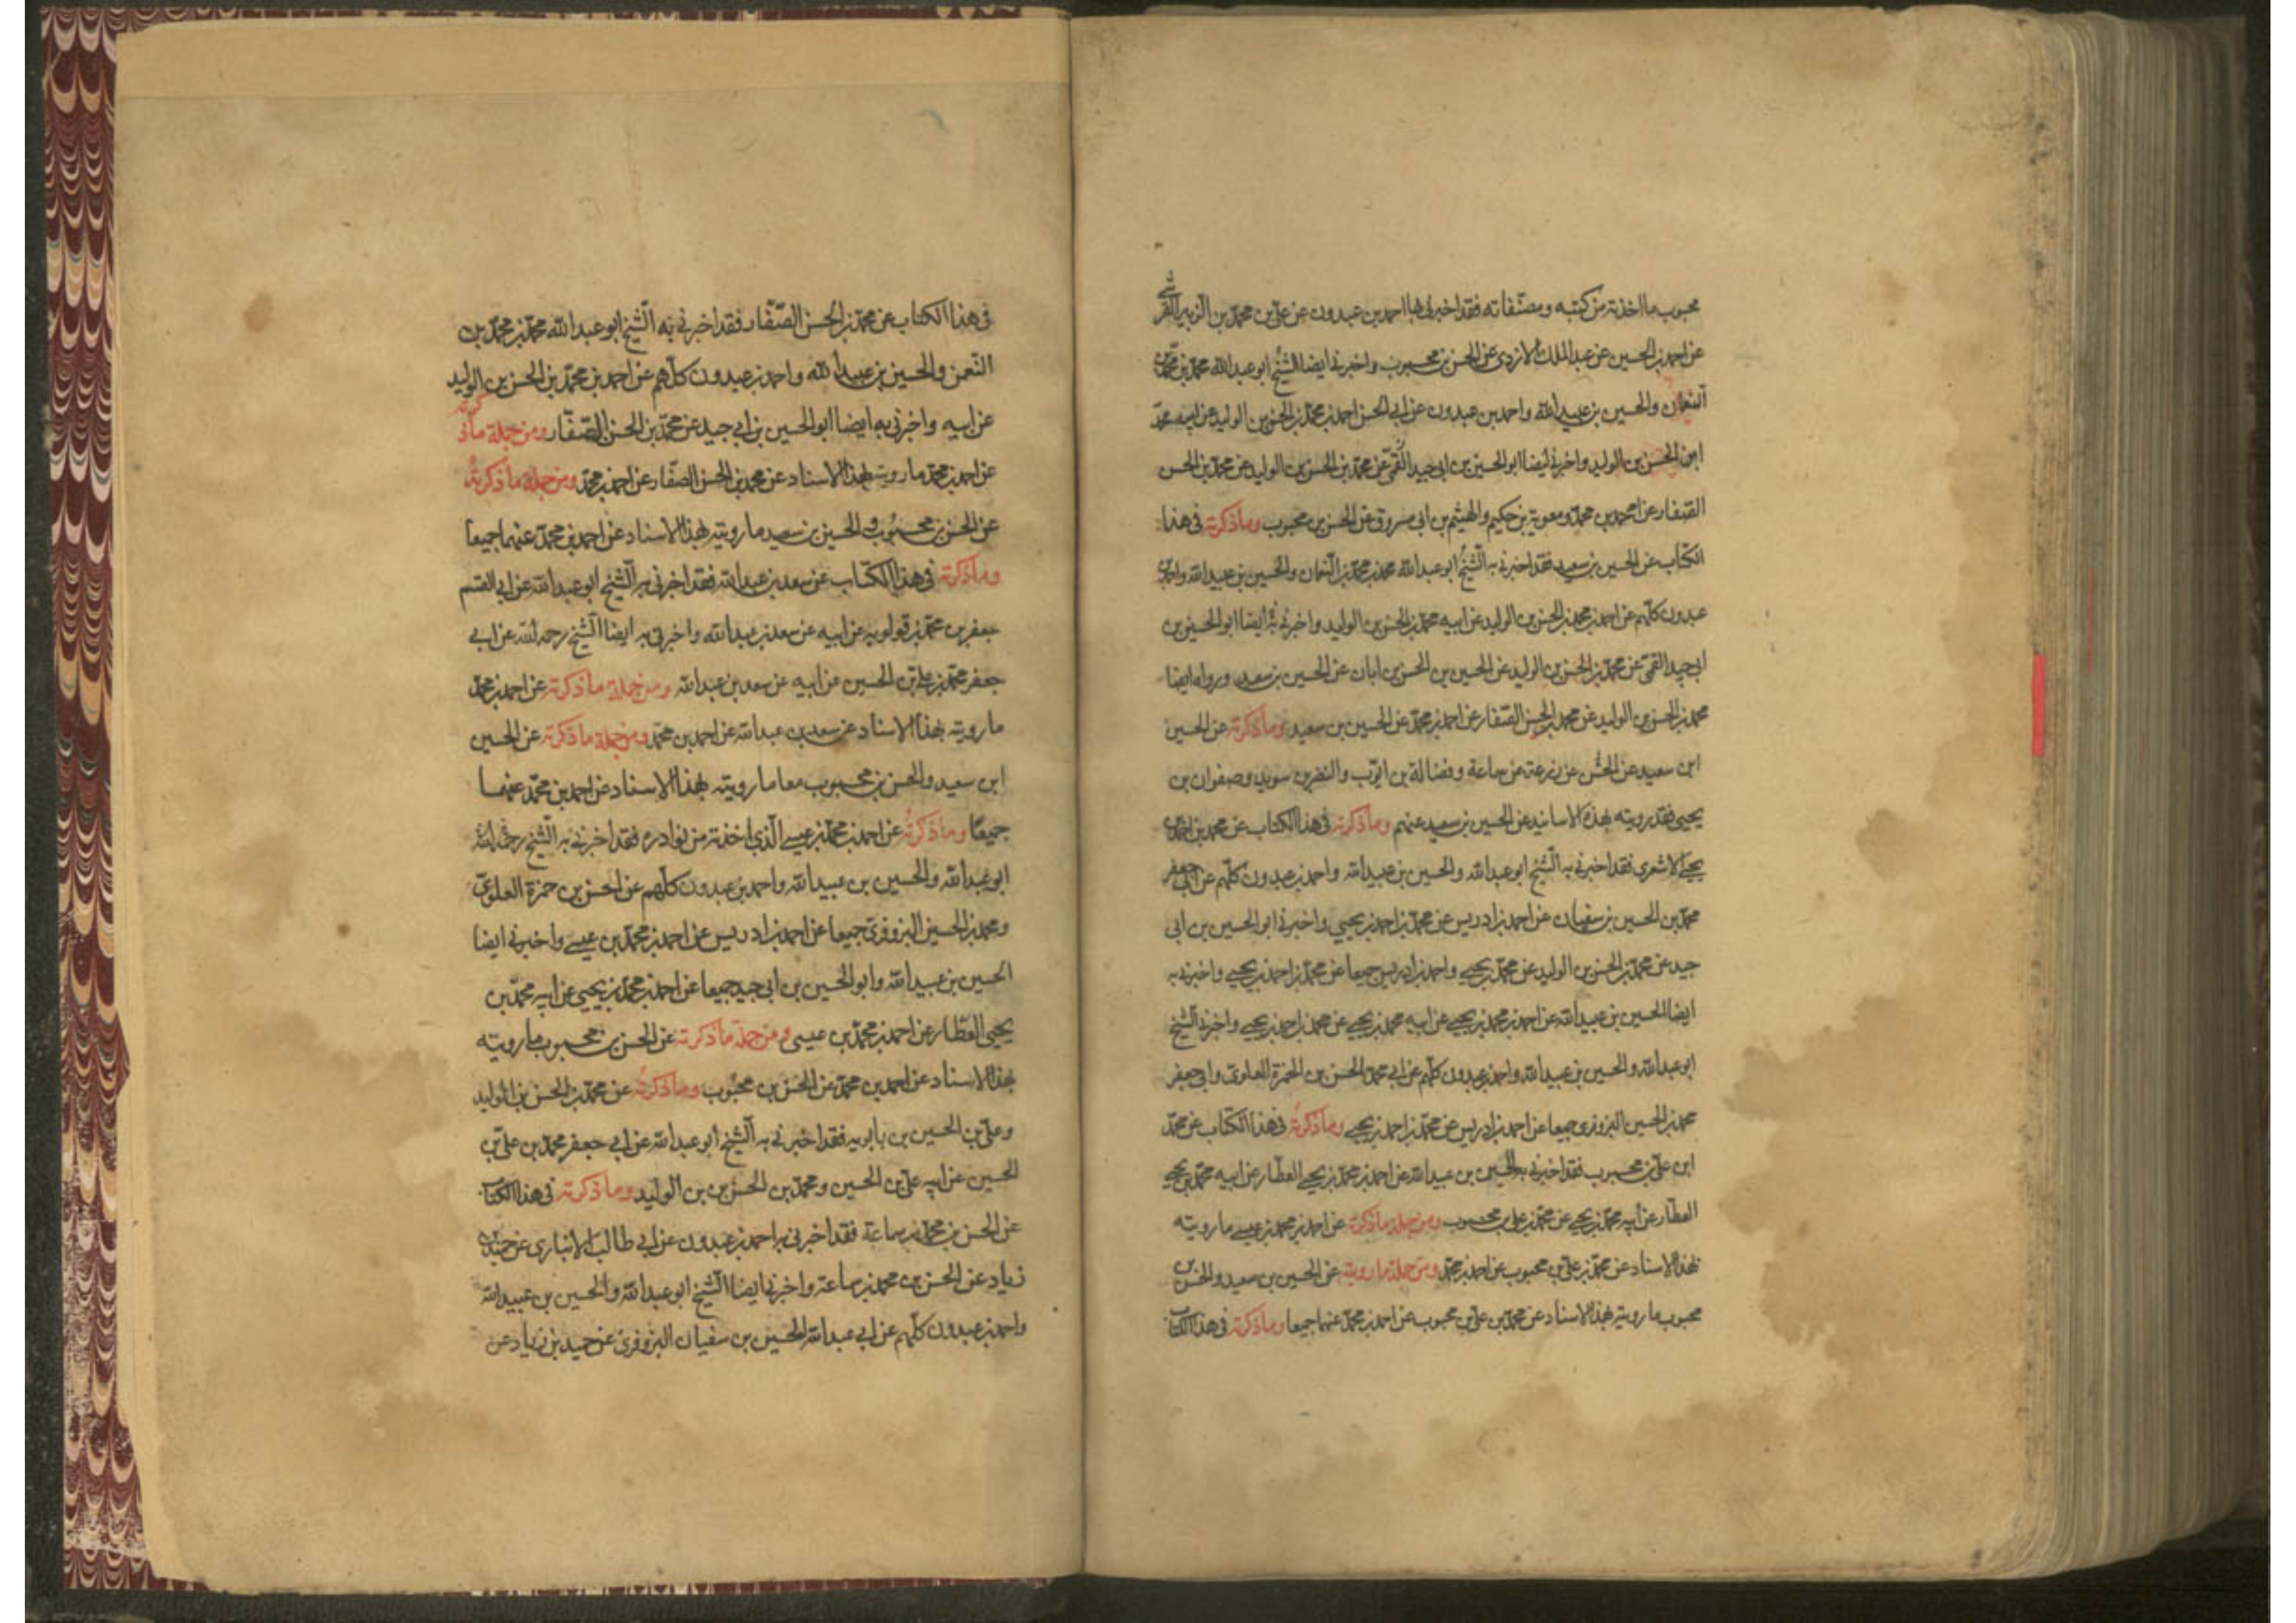 محبوب ما اخذته من كتبه ومصنفاته فقد اخبرني بها احمد بن عبدون عن علي بن محمد بن الزبير القرشي
عن احمد بن الحسين عن عبد الملك الازدي عن الحسن بن محبوب واخبرني ايضا الشيخ ابو عبد الله محمد بن محمد بن
النعمان والحسين بن عبيد الله واحمد بن عبدون عن ابي الحسن احمد بن محمد بن الحسن بن الوليد عن ابيه محمد
ابن الحسن بن الوليد واخبرني ايضا ابو الحسين بن ابي جيد القمي عن محمد بن الحسن بن الوليد عن محمد بن الحسن
الصفار عن احمد بن محمد ومعوية بن حكيم والهيثم بن ابي مسروق عن الحسن بن محبوب وما ذكرته في هذا
الكتاب عن الحسين بن سعيد فقد اخبرني به الشيخ ابو عبد الله محمد بن محمد بن النعمان والحسين بن عبيد الله واحمد بن
عبدون كلهم عن احمد بن محمد بن الحسن بن الوليد عن ابيه محمد بن الحسن بن الوليد واخبرني به ايضا ابو الحسين بن
ابي جيد القمي عن محمد بن الحسن بن الوليد عن الحسين بن الحسن بن ابان عن الحسين بن سعيد ورواه ايضا
محمد بن الحسن بن الوليد عن محمد بن الحسن الصفار عن احمد بن محمد عن الحسين بن سعيد وما ذكرته عن الحسين
ابن سعيد عن الحسن عن زرعة عن سماعة وفضالة بن ايوب والنضر بن سويد وصفوان بن
يحيى فقد رويته بهذه الاسانيد عن الحسين بن سعيد عنهم وما ذكرته في هذا الكتاب عن محمد بن احمد بن
يحيى الاشعري فقد اخبرني به الشيخ ابو عبد الله والحسين بن عبيد الله واحمد بن عبدون كلهم عن ابي جعفر
محمد بن الحسين بن سفيان عن احمد بن ادريس عن محمد بن احمد بن يحيى واخبرني ابو الحسين بن ابي
جيد عن محمد بن الحسن بن الوليد عن محمد بن يحيى واحمد بن ادريس جميعا عن محمد بن احمد بن يحيى واخبرني به
ايضا الحسين بن عبيد الله عن احمد بن محمد بن يحيى عن ابيه محمد بن يحيى عن محمد بن احمد بن يحيى واخبرني الشيخ
ابو عبد الله والحسين بن عبيد الله واحمد بن عبدون كلهم عن ابي محمد الحسن بن الحمزة العلوي وابي جعفر
محمد بن الحسين البزوفري جميعا عن احمد بن ادريس عن محمد بن احمد بن يحيى وما ذكرته في هذا الكتاب عن محمد
ابن علي بن محبوب فقد اخبرني به الحسين بن عبيد الله عن احمد بن محمد بن يحيى العطار عن ابيه محمد بن يحيى
العطار عن ابيه محمد بن يحيى عن محمد بن علي بن محبوب ومن جملة ما ذكرته عن احمد بن محمد بن عيسى ما رويته
بهذا الاسناد عن محمد بن علي بن محبوب عن احمد بن محمد ومن جملة ما رويته عن الحسين بن سعيد والحسن بن
محبوب ما رويته بهذا الاسناد عن محمد بن علي بن محبوب عن احمد بن محمد عنهما جميعا وما ذكرته في هذا الكتاب
في هذا الكتاب عن محمد بن الحسن الصفار فقد اخبرني به الشيخ ابو عبد الله محمد بن محمد بن
النعمن والحسين بن عبيد الله واحمد بن عبدون كلهم عن احمد بن محمد بن الحسن بن الوليد
عن ابيه واخبرني به ايضا ابو الحسين بن ابي جيد عن محمد بن الحسن الصفار ومن جملة ما ذكرته
عن احمد بن محمد ما رويته بهذا الاسناد عن محمد بن الحسن الصفار عن احمد بن محمد ومن جملة ما ذكرته
عن الحسن بن محبوب والحسين بن سعيد ما رويته بهذا الاسناد عن احمد بن محمد عنهما جميعا
وما ذكرته في هذا الكتاب عن سعد بن عبد الله فقد اخبرني به الشيخ ابو عبد الله عن ابي القسم
جعفر بن محمد بن قولويه عن ابيه عن سعد بن عبد الله واخبرني به ايضا الشيخ رحمه الله عن ابي
جعفر محمد بن علي بن الحسين عن ابيه عن سعد بن عبد الله ومن جملة ما ذكرته عن احمد بن محمد
ما رويته بهذا الاسناد عن سعد بن عبد الله عن احمد بن محمد ومن جملة ما ذكرته عن الحسين
ابن سعيد والحسن بن محبوب معا ما رويته بهذا الاسناد عن احمد بن محمد عنهما
جميعا وما ذكرته عن احمد بن محمد بن عيسى الذي اخذته من نوادره فقد اخبرني به الشيخ رحمه الله
ابو عبد الله والحسين بن عبيد الله واحمد بن عبدون كلهم عن الحسن بن حمزة العلوي
ومحمد بن الحسين البزوفري جميعا عن احمد بن ادريس عن احمد بن محمد بن عيسى واخبرني ايضا
الحسين بن عبيد الله وابو الحسين بن ابي جيد جميعا عن احمد بن محمد بن يحيى عن ابيه محمد بن
يحيى العطار عن احمد بن محمد بن عيسى ومن جملة ما ذكرته عن الحسن بن محبوب ما رويته
بهذا الاسناد عن احمد بن محمد عن الحسن بن محبوب وما ذكرته عن محمد بن الحسن بن الوليد
وعلي بن الحسين بن بابويه فقد اخبرني به الشيخ ابو عبد الله عن ابي جعفر محمد بن علي بن
الحسين عن ابيه علي بن الحسين ومحمد بن الحسن بن الوليد وما ذكرته في هذا الكتاب
عن الحسن بن محمد بن سماعة فقد اخبرني به احمد بن عبدون عن ابي طالب الانباري عن حميد بن
زياد عن الحسن بن محمد بن سماعة واخبرني ايضا الشيخ ابو عبد الله والحسين بن عبيد الله
واحمد بن عبدون كلهم عن ابي عبد الله الحسين بن سفيان البزوفري عن حميد بن زياد عن